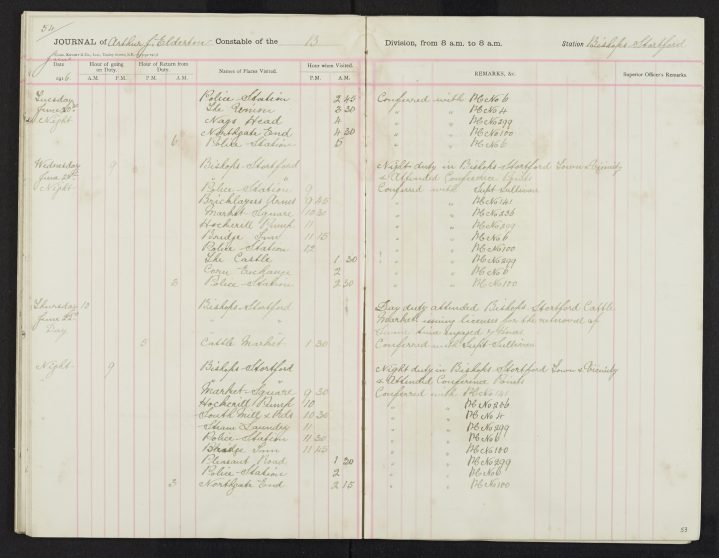 54
JOURNAL of Arthur J. Elderton Constable of the 13 Division, from 8 a.m. to 8 a.m. Station Bishops Stortford
June
1916.
Date Hour of going on Duty. Hour of Return from Duty. Names of Places Visited. Hour when Visited. REMARKS, &c. Superior Officer's Remarks.
A.M. P.M. P.M. A.M. P.M. A.M.
Tuesday Police Station 2 45 Conferred with PC No 6
June 20th The 3 30 " " PC No 4
Night Nags Head 4 " " PC No 299
Northgate End 4 30 " " PC No 100
6 Police Station 5 " " PC No 6
Wednesday 9 Bishops Stortford Night duty in Bishops Stortford Town & Vicinity
June 21st " " & Attended Conference Points
Night Police Station 9 Conferred with Supt Sullivan
Bricklayers Arms 9 45 " " PC No 141
Market Square 10 30 " " PC No 236
Hockerill Pump 11 " " PC No 299
Bridge Inn 11 15 " " PC No 6
Police Station 12 " " PC No 100
The Castle 1 30 " " PC No 299
Corn Exchange 2 " " PC No 6
3 Police Station 2 30 " " PC No 100
Thursday 10 Bishops Stortford Day duty attended Bishops Stortford Cattle
June 22nd " " Market issuing licences for the removal of
Day Swine time engaged 4 hours
5 Cattle Market 1 30 Conferred with Supt Sullivan
Night 9 Bishops Stortford Night duty in Bishops Stortford Town & Vicinity
" " & Attended Conference Points
Market Square 9 30 Conferred with PC No 141
Hockerill Pump 10 " " PC No 236
South Mill 10 30 " " PC No 4
Steam Laundry 11 " " PC No 299
Police Station 11 30 " " PC No 6
Bridge Inn 11 45 " " PC No 100
Pleasant Road 1 30 " " PC No 299
Police Station 2 " " PC No 6
3 Northgate End 2 15 " " PC No 100
53